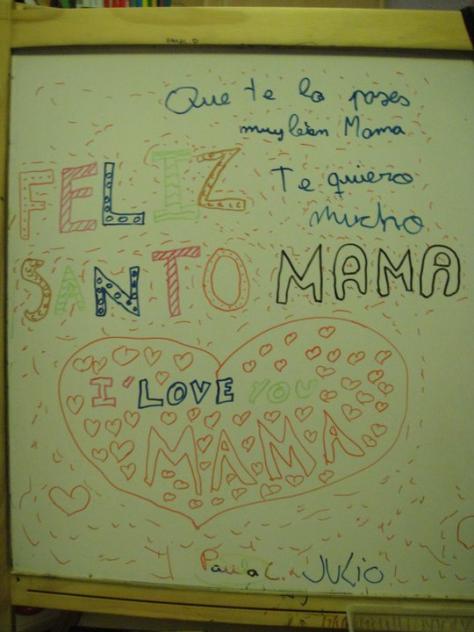 Que te lo pases
muy bien Mama
FELIZ
Te quiero
mucho
SANTO MAMA
I'LOVE YOU
MAMA
Paula C. JULIO